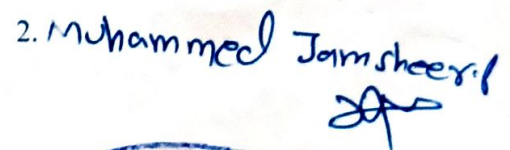 2. Muhammed Jamsheer.P